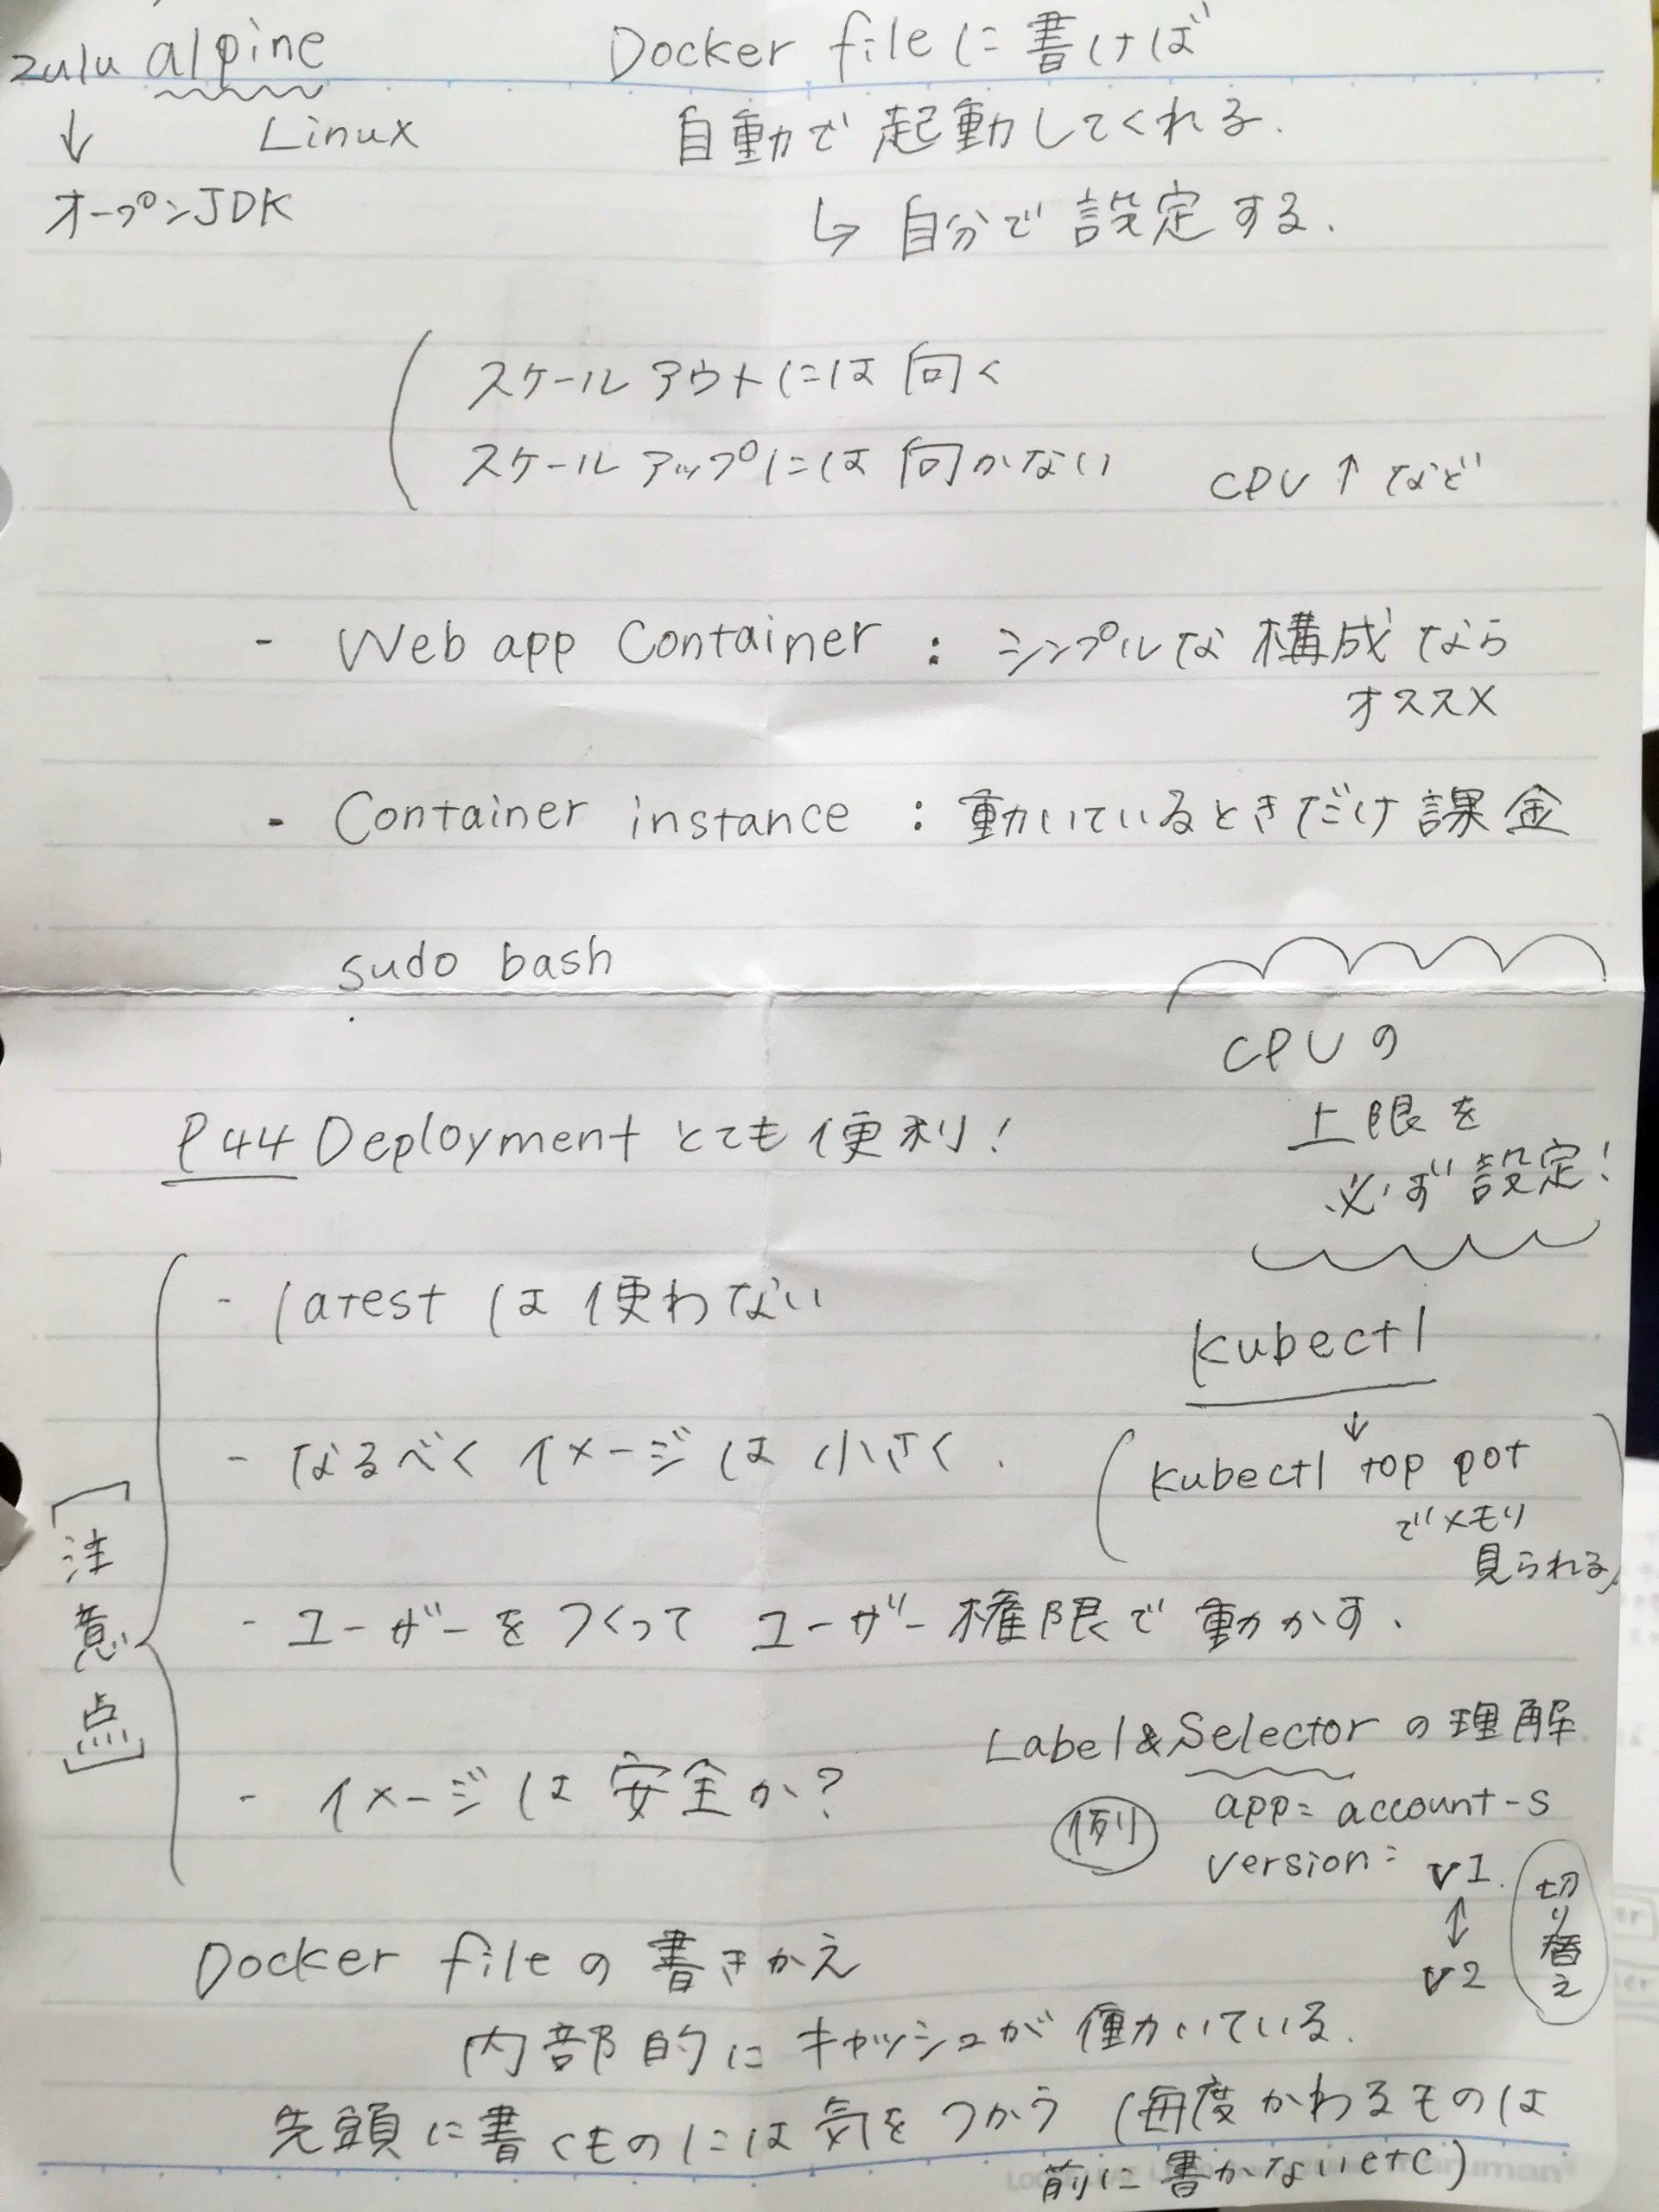 zulu alpine
↓ Linux
オープンJDK
Docker fileに書けば
自動で起動してくれる.
↳ 自分で設定する.
スケールアウトには向く
スケールアップには向かない CPU↑など
- Web app Container : シンプルな構成なら
オススメ
- Container instance : 動いているときだけ課金
sudo bash
CPUの
上限を
必ず設定!
P44 Deployment とても便利!
[注意点]
- latestは使わない
- なるべくイメージは小さく.
- ユーザーをつくってユーザー権限で動かす.
- イメージは安全か?
kubectl
↓
(kubectl top pot
でメモリ
見られる)
Label&Selectorの理解
例 app= account-s
version= v1.
↕
v2
切り替え
Docker fileの書きかえ
内部的にキャッシュが働いている.
先頭に書くものには気をつかう (毎度かわるものは
前に書かないetc)